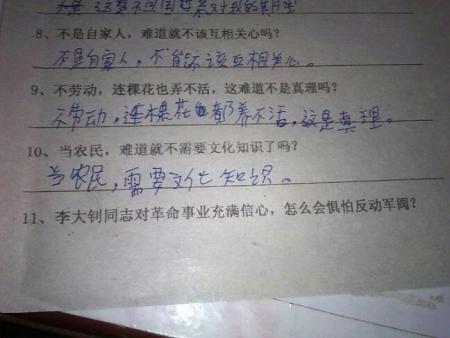 8、不是自家人，难道就不该互相关心吗？
不是自家人，不能不该互相关心。
9、不劳动，连棵花也弄不活，这难道不是真理吗？
不劳动，连棵花也都养不活，这是真理。
10、当农民，难道就不需要文化知识了吗？
当农民，需要文化知识。
11、李大钊同志对革命事业充满信心，怎么会惧怕反动军阀？